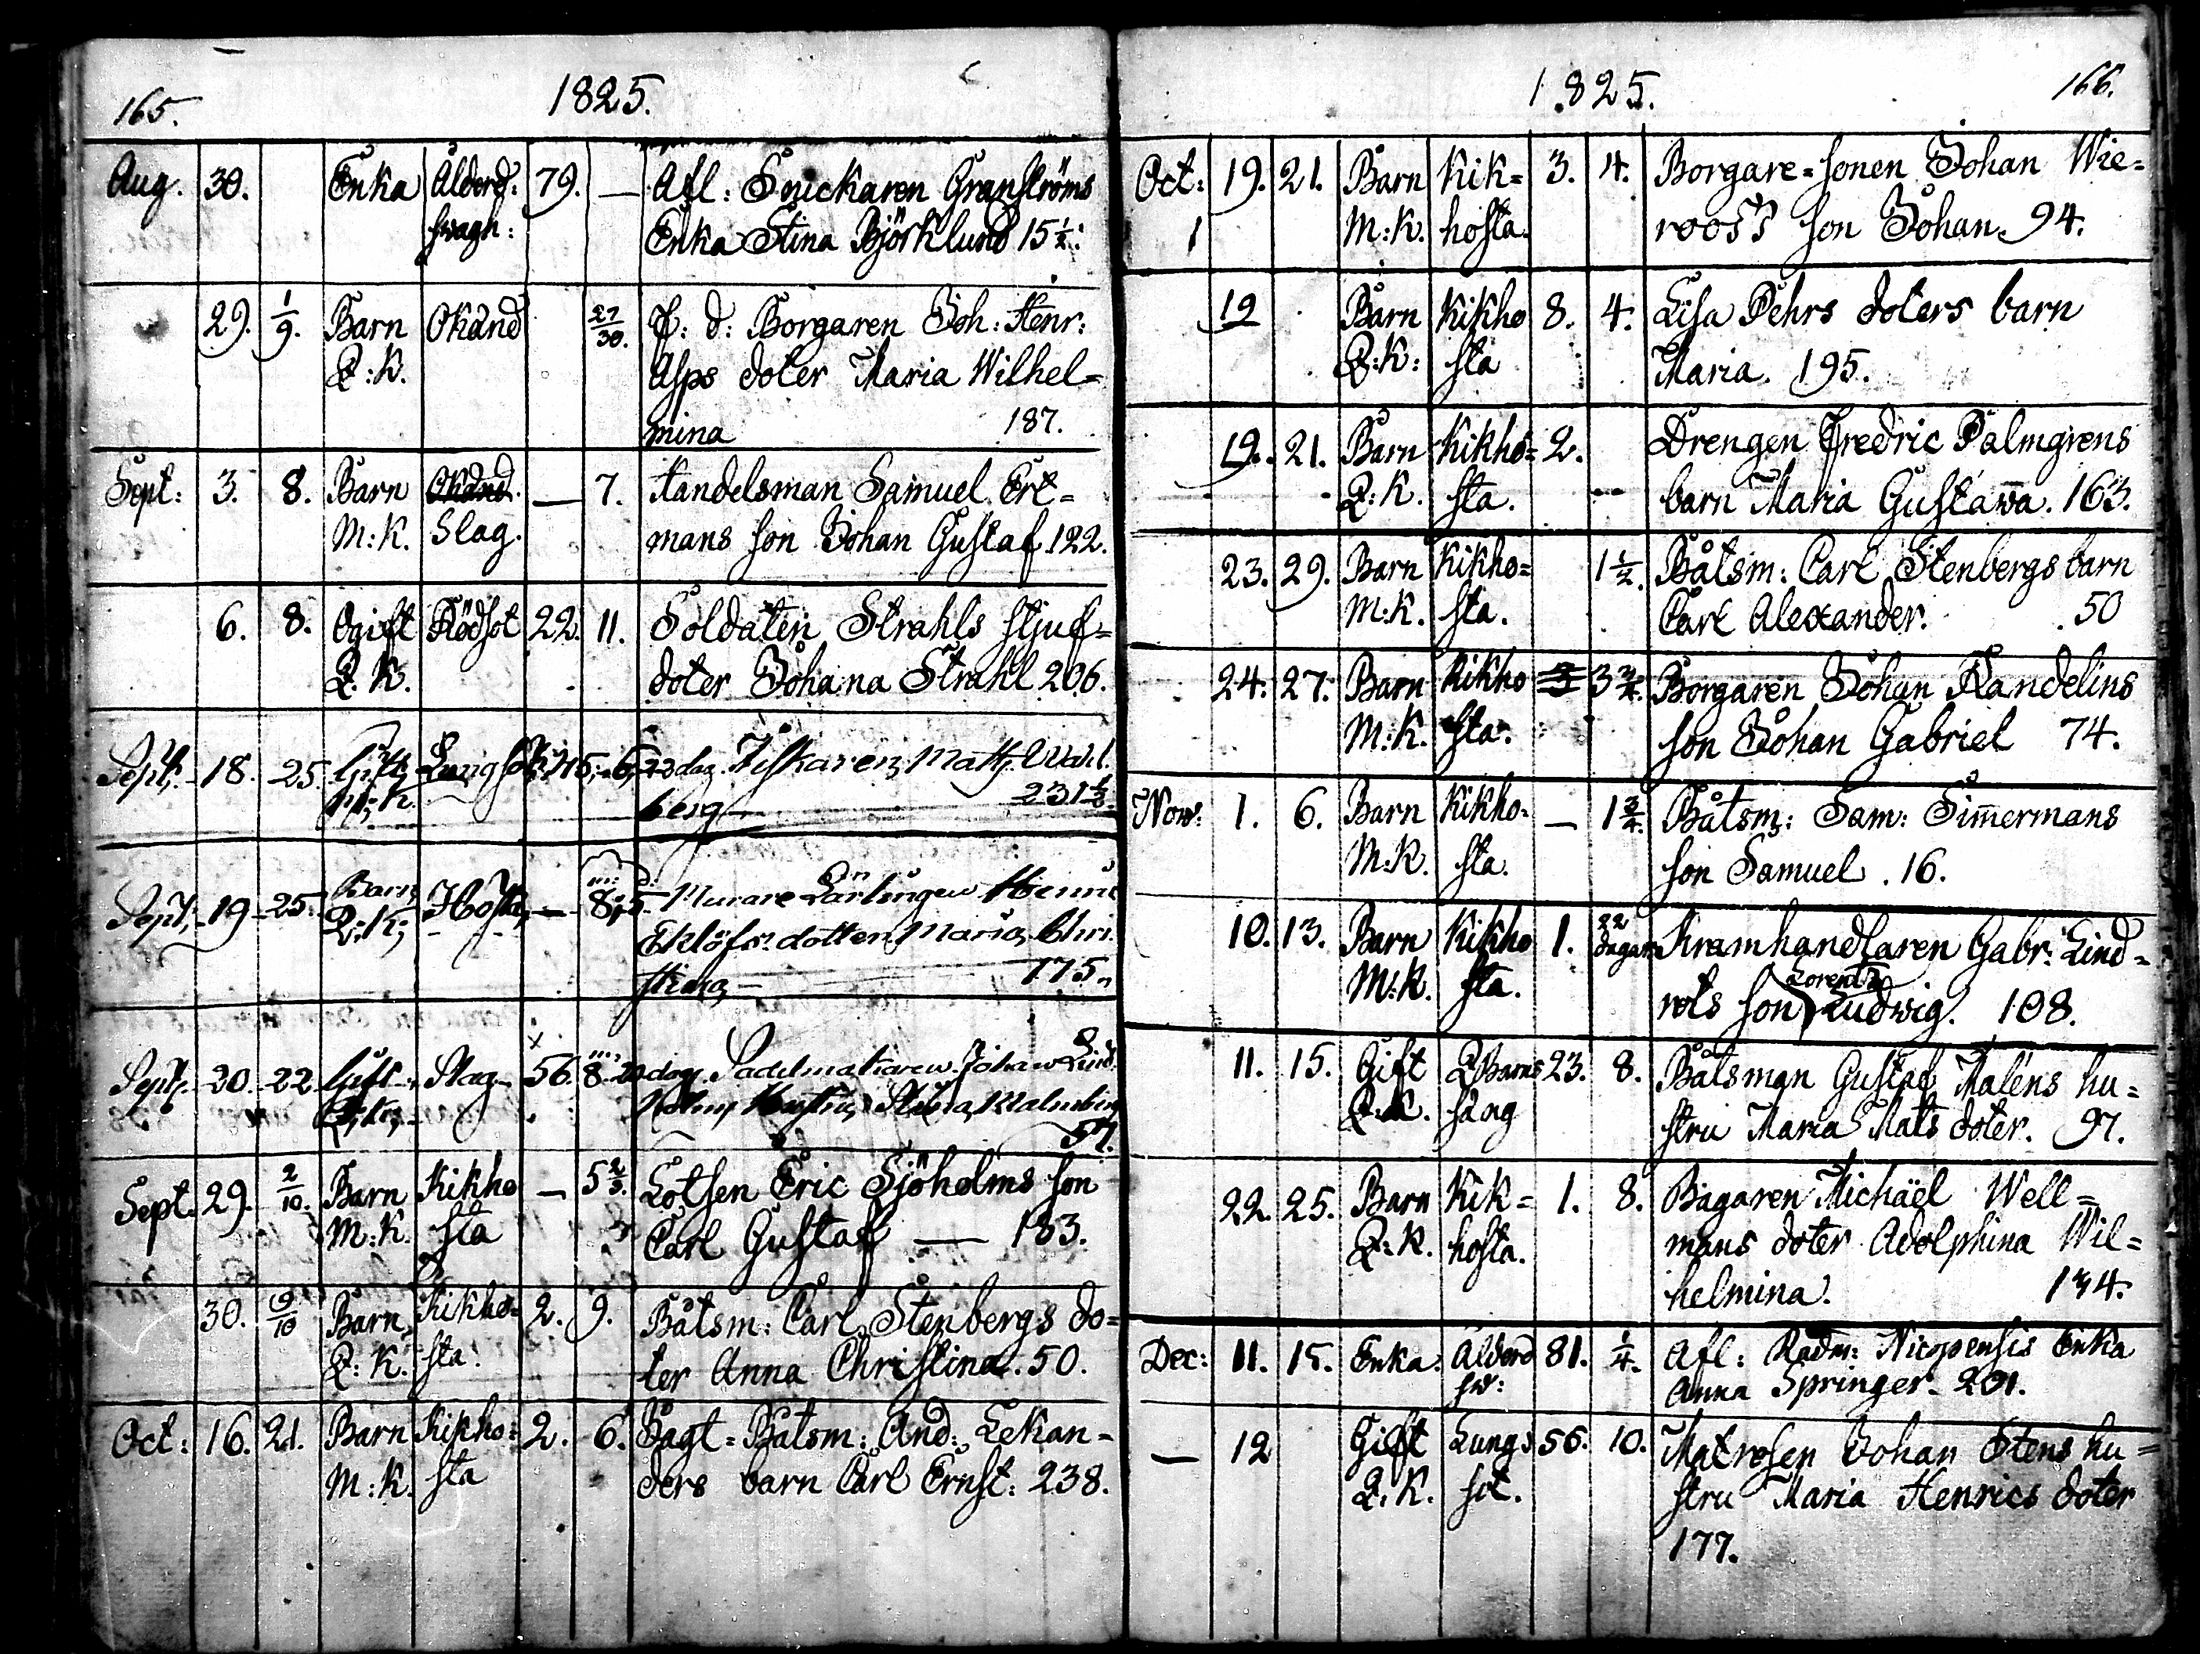 165.
1825.
Aug. 30. Enka Ålderd: 79. — Afl: Snickaren Granströms
swagh: Enka Stina Björklund 15½.
29. 1/9. Barn Okänd 27/30. f: d: Borgaren Joh: Henr:
Q:K. Asps doter Maria Wilhel=
mina 187.
Sept: 3. 8. Barn Okänd. — 7. Handelsman Samuel Ert=
M:K. Slag. mans son Johan Gustaf 122.
6. 8. Ogift Rödsot 22. 11. Soldaten Strahls stjuf=
Q.K. doter Johana Strahl 206.
Sept: 18. 25. Gift, Lungsot, dag. Fiskaren, Matts Wahl
M:K. berg 231½.
Sept: 19 25. Barn, Hosta, — 8, 5. Murare Lärlingen Henric
Q:K; Eklöfs dotter, Maria Chri
stina, — 175.
Sept. 20. 22 Gift Slag 56. 8. 20 dag. Sadelmakaren Johan Lind
Hustru, Stina Malmberg
57.
Sept. 29. 2/10. Barn Kikho — 5 2/3. Lotsen Eric Sjöholms son
M:K. sta Carl Gustaf — 183.
30. 9/10 Barn Kikho= 2. 9. Båtsm: Carl Stenbergs do=
Q:K. sta. ter Anna Christina. 50.
Oct: 16. 21. Barn Kikho= 2. 6. Jagt=Båtsm: And: Lekan=
M:K. sta ders barn Carl Ernst: 238.
1825.
166.
Oct: 19. 21. Barn Kik= 3. 4. Borgare=sonen Johan Wie=
1 M:K. hosta. roos's son Johan. 94.
19 Barn Kikho 8. 4. Lisa Pehrs doters barn
Q:K: sta Maria. 195.
19. 21. Barn Kikho= 2. Drengen Fredric Palmgrens
Q:K. sta. barn Maria Gustawa. 163.
23. 29. Barn Kikho= 1½. Båtsm: Carl Stenbergs barn
M:K. sta. Carl Alexander. 50
24. 27. Barn Kikho 3 3¾. Borgaren Johan Randelins
M:K. sta. son Johan Gabriel 74.
Now: 1. 6. Barn Kikho= — 1¾. Båtsm: Sam: Sim̄ermans
M:K. sta. son Samuel. 16.
10. 13. Barn Kikho 1. 22 dagar Kramhandlaren Gabr: Lind=
M:K. sta. rots son Lorentz Ludwig. 108.
11. 15. Gift Barns 23. 8. Båtsman Gustaf Maléns hu=
Q:K. säng stru Maria Mats doter. 97.
22. 25. Barn Kik= 1. 8. Bagaren Michäel Well=
Q:K. hosta. mans doter Adolphina Wil=
helmina. 134.
Dec: 11. 15. Enka. Ålderd 81. ¼. Afl: Rådm: Enka
sw: Anna Springer. 201.
— 12 Gift Lungs 56. 10. Matrosen Johan Stens hu=
Q.K. sot. stru Maria Henrics doter
177.